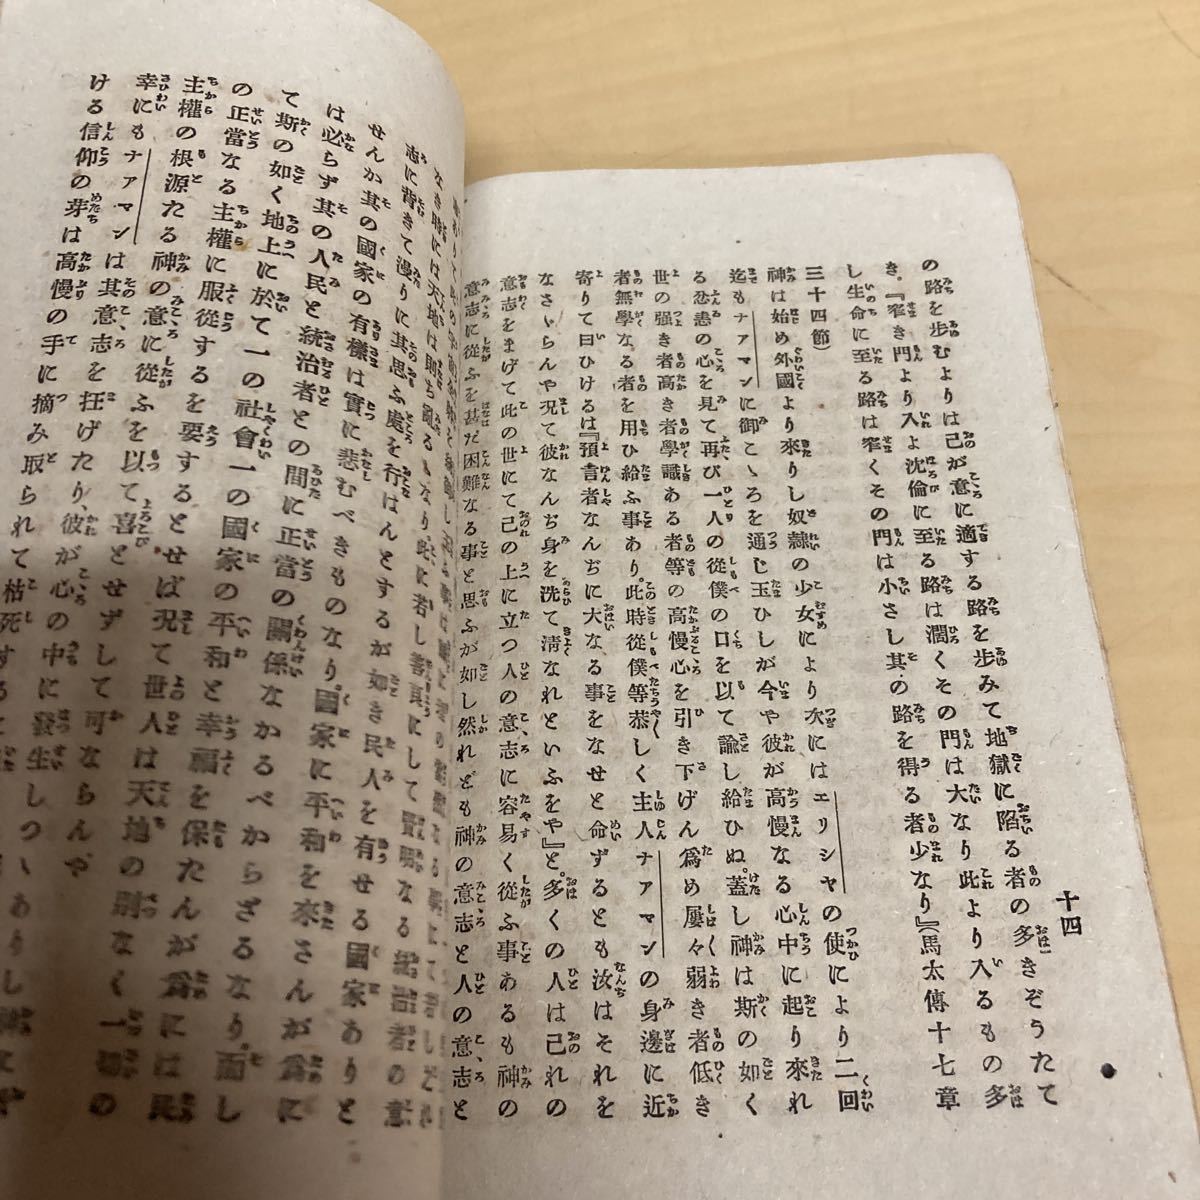 十四
の路を步むよりは己が意に適する路を步みて地獄に陷る者の多きぞうたて
き。『窄き門より入よ沈倫に至る路は濶くその門は大なり此より入るもの多
し生命に至る路は窄くその門は小さし其の路を得る者少なり』(馬太傳十七章
三十四節)
神は始め外國より來りし奴隷の少女により次にはエリシヤの使により二回
迄もナアマンに御こゝろを通じ玉ひしが今や彼が高慢なる心中に起り來れ
る忿恚の心を見て再び一人の從僕の口を以て諭し給ひぬ。蓋し神は斯の如く
世の强き者高き者學識ある者等の高慢心を引き下げん爲め屢々弱き者低き
者無學なる者を用ひ給ふ事あり。此時從僕等恭しく主人ナアマンの身邊に近
寄りて曰ひけるは『預言者なんぢに大なる事をなせと命ずるとも汝はそれを
なさゞらんや况て彼なんぢ身を洗て淸なれといふをや』と。多くの人は己れの
意志をまげて此の世にて己の上に立つ人の意志に容易く從ふ事あるも神の
意志に從ふを甚だ困難なる事と思ふが如し然れども神の意志と人の意志と
なき時には天地は則ち
志に背きて漫りに其思ふ處を行はんとするが如き民人を有せる國家ありと
せんか其の國家の有樣は實に悲むべきものなり。國家に平和を來さんが爲に
は必らず其の人民と統治者との間に正當の關係なかるべからざるなり。而し
て斯の如く地上に於て一の社會一の國家の平和と幸福を保たんが爲には民
の正當なる主權に服從するを要するとせば况て世人は天地の別なく一切の
主權の根源たる神の意に從ふを以て喜とせずして可ならんや
幸にもナアマンは其意志を抂げたり、彼が心の中に發生しつゝありし
ける信仰の芽は高慢の手に摘み取られて枯死する